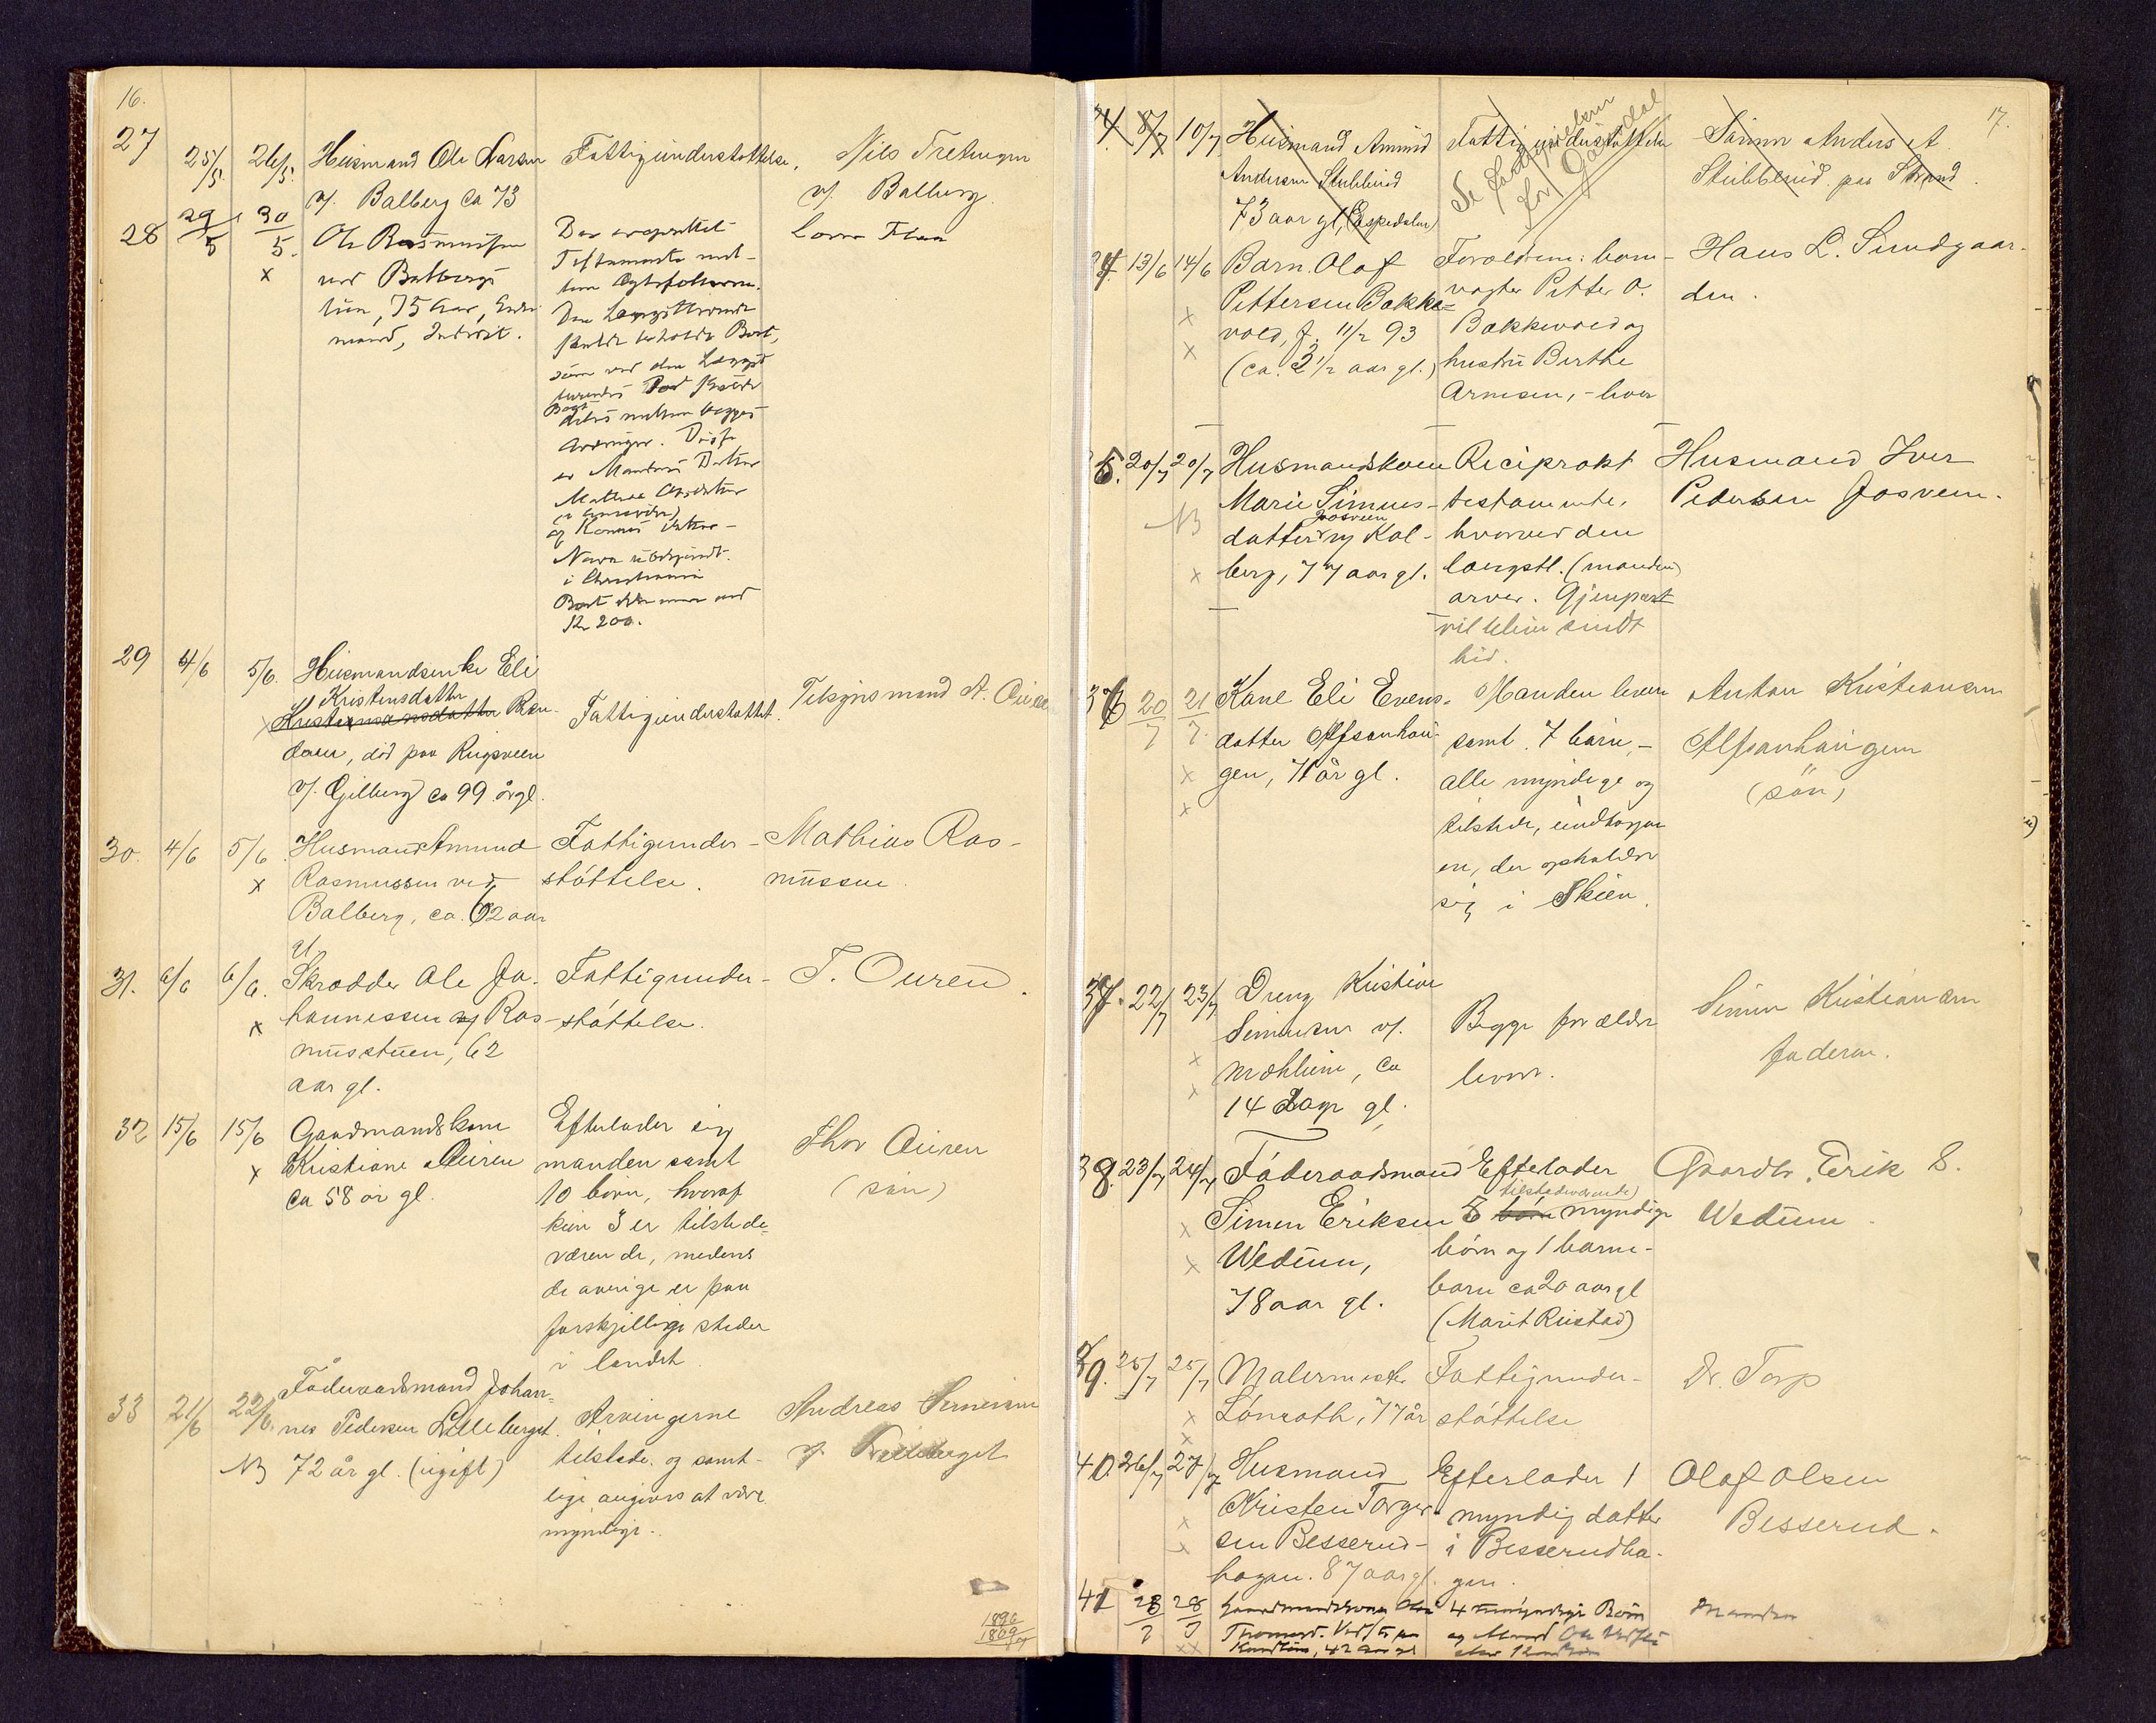 16.
27 25/5. 26/5. Husmand Ole Larsen Fattigunderstøttelse. Nils Tretungen
v/. Balberg ca 73 v/. Balberg.
28 29/5 30/5. Ole Rasmussen Der er oprettet
ved Balbergs- Testamente mel-
tuen, 75 Aar, Enke- lem Ægtefolkene.
mand, Inderst. Den Længstlevende
skulde beholde Boet,
som ved den Længst
levendes Død skulde
deles mellem begges
Arvinger. Disse
er Mandens Datter
og Konens Datter
i Christiania
Boet ikke mere end
Kr 200.
29 4/6 5/6. Husmandsenke Eli
Kristensdatter
død paa Rugsveen Fattigunderstøttet. Tilsynsmand A.
v/. Gilberg ca 99 år gl.
30. 4/6 5/6. Husmand Amund Fattigunder- Mathias Ras-
x Rasmussen ved støttelse. mussen.
Balberg, ca. 62 aar
gl.
31. 6/6 6/6. Skrædder Ole Jo- Fattigunder- T. Ouren.
x hannessen af Ras- støttelse.
musstuen, 62
aar gl.
32 15/6 15/6 Gaardmandskone Efterlader sig Thor Ouren
x Kristiane Ouren manden samt (søn)
ca 58 år gl. 10 børn, hvoraf
kun 3 er tilstede-
værende, medens
de øvrige er paa
forskjellige steder
i landet.
33 21/6 22/6. Føderaadsmand Johan-
nes Pedersen Lilleberget. Arvingerne Andreas
NB 72 år gl. (ugift) tilstede. og samt- v/.
lige angives at være
myndige.
1896
1809
17.
34. 8/7 10/7 Husmand Amund Fattigunderstøttelse Sønnen Anders A.
Andersen Stubberud Stubberud paa Strand.
73 aar gl. (Espedalen)
34. 13/6 14/6 Barn. Olaf Forældrene: bane- Hans L. Sundgaar-
x Pettersen Bakke- vogter Petter O. den.
x vold, f. 11/2 93 Bakkevold og
(ca. 3 1/2 aar gl.) hustru Berthe
Arnesen, - lever
35. 20/7 20/7 Husmandskone Reciprokt Husmand Iver
Marie Simens- testamente, Pedersen Josveen.
NB Josveen
datter ny Kol- hvorved den
x berg, 77 aar gl. længstl. (manden)
arver. Gjenpart
vil blive sendt
hid.
36 20/7 21/7. Kone Eli Evens- Manden lever Anton Kristiansen
datter Alfsonhau- samt 7 børn, - Alfsonhaugen
x gen, 71 år gl. alle myndige og (søn)
x tilstede, undtagen
en, der opholder
sig i Skien.
37. 22/7 23/7 Dreng Kristian Simen Kristiansen
Simensen v/. Begge forældre faderen.
x Mæhlum, ca lever.
x 14 Dage gl.
38. 23/7 24/7 Føderaadsmand Efterlader Gaardbr. Erik S.
tilstedeværende
x Simen Eriksen børn myndige Wedum.
x Wedum, børn og 1 barne-
78 aar gl. barn ca 20 aar gl
(Marit Rustad)
39. 25/7 25/7 Malermester Fattigunder- Dr. Torp
x Lønroth, 77 år støttelse
x
40. 26/7 27/7 Husmand Efterlader 1 Olaf Olsen
x Kristen Torger- myndig datter Besserud.
x sen Besserud- i Besserudha-
hagen. 87 aar gl. gen.
41 28/7 28/7 Gaardmandskone 4 umyndige Børn Manden
xx 42 Aar gl